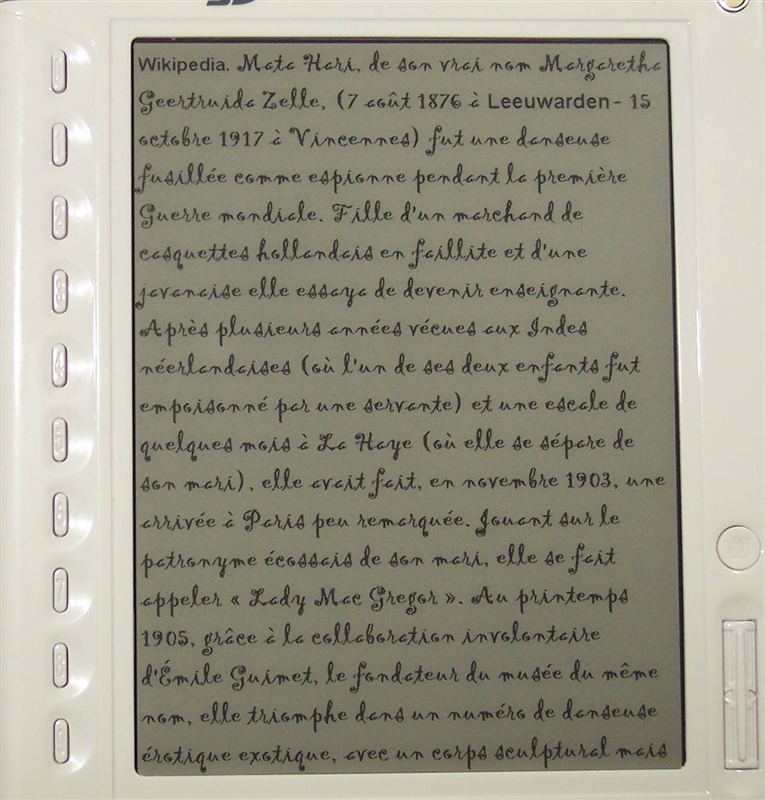 Wikipedia. Mata Hari, de son vrai nom Margaretha
Geertruida Zelle, (7 août 1876 à Leeuwarden - 15
octobre 1917 à Vincennes) fut une danseuse
fusillée comme espionne pendant la première
Guerre mondiale. Fille d'un marchand de
casquettes hollandais en faillite et d'une
javanaise elle essaya de devenir enseignante.
Après plusieurs années vécues aux Indes
néerlandaises (où l'un de ses deux enfants fut
empoisonné par une servante) et une escale de
quelques mois à La Haye (où elle se sépare de
son mari), elle avait fait, en novembre 1903, une
arrivée à Paris peu remarquée. Jouant sur le
patronyme écossais de son mari, elle se fait
appeler « Lady Mac Gregor ». Au printemps
1905, grâce à la collaboration involontaire
d'Émile Guimet, le fondateur du musée du même
nom, elle triomphe dans un numéro de danseuse
érotique exotique, avec un corps sculptural mais